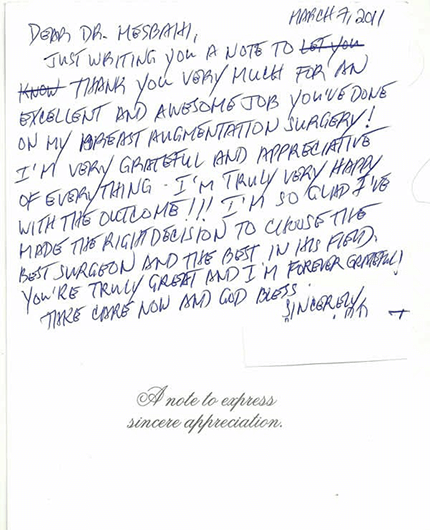 MARCH 7, 2011
DEAR DR. MESBAHI,
JUST WRITING YOU A NOTE TO LET YOU
KNOW THANK YOU VERY MUCH FOR AN
EXCELLENT AND AWESOME JOB YOU'VE DONE
ON MY BREAST AUGMENTATION SURGERY!
I'M VERY GRATEFUL AND APPRECIATIVE
OF EVERYTHING. I'M TRULY VERY HAPPY
WITH THE OUTCOME!!! I'M SO GLAD I'VE
MADE THE RIGHT DECISION TO CHOOSE THE
BEST SURGEON AND THE BEST IN HIS FIELD.
YOU'RE TRULY GREAT AND I'M FOREVER GRATEFUL!
TAKE CARE NOW AND GOD BLESS.
SINCERELY,
A note to express
sincere appreciation.